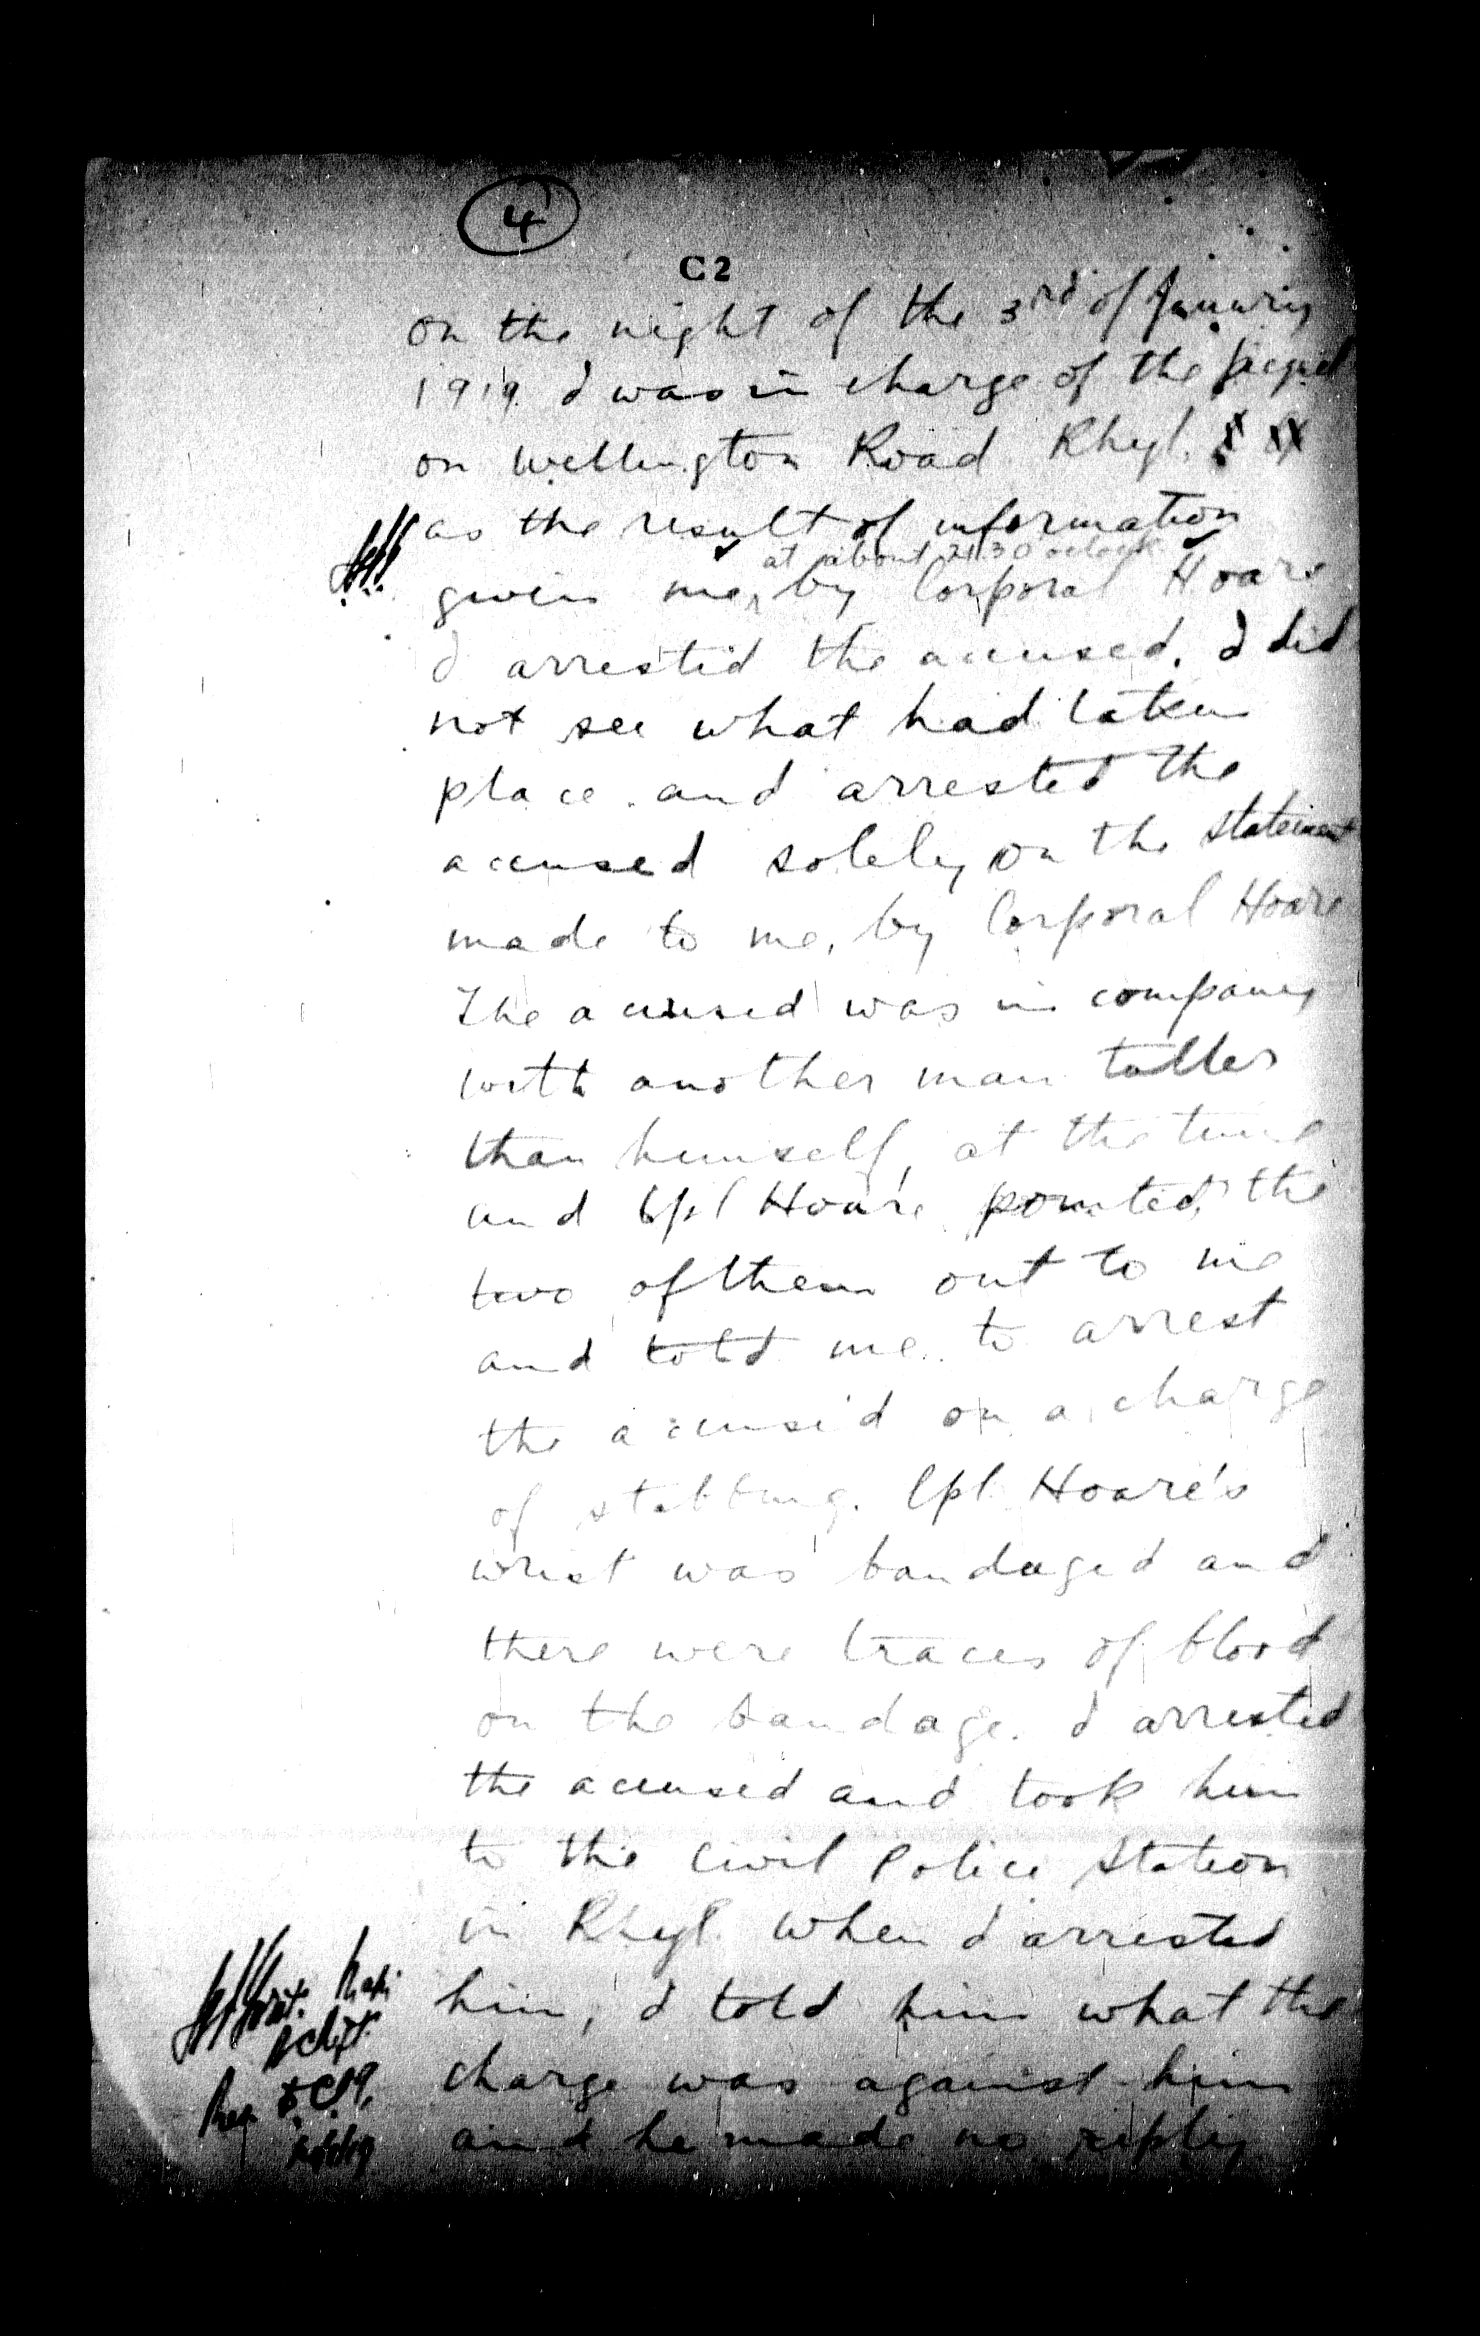 4
C2
on the night of the 3rd of January
1919 I was in charge of the picquet
on Wellington Road Rhyl.
as the result of information
at about 21.30 oclock
given me, by Corporal Hoare
I arrested the accused. I did
not see what had taken
place and arrested the
accused solely on the statement
made to me, by Corporal Hoare
The accused was in company
with another man taller
than himself, at the time
and Cpl Hoare pointed the
two of them out to me
and told me to arrest
the accused on a charge
of stabbing. Cpl Hoare's
wrist was bandaged and
there were traces of blood
on the bandage. I arrested
the accused and took him
to the Civil Police Station
in Rhyl. When I arrested
him, I told him what the
charge was against him
and he made no reply